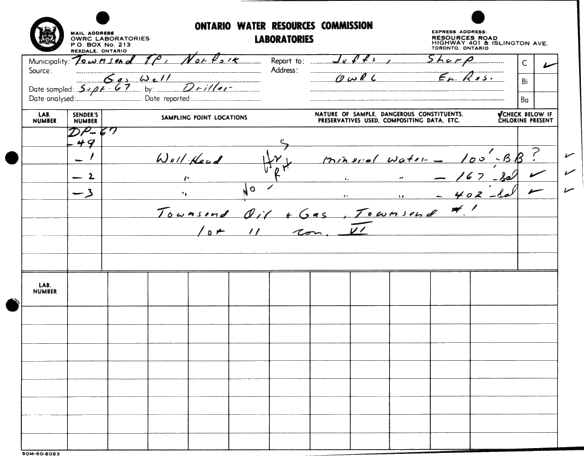 MAIL ADDRESS
OWRC LABORATORIES
P.O. BOX No. 213
REXDALE, ONTARIO
ONTARIO WATER RESOURCES COMMISSION
LABORATORIES
EXPRESS ADDRESS:
RESOURCES ROAD
HIGHWAY 401 & ISLINGTON AVE.
TORONTO, ONTARIO
Municipality: Townsend TP, Norfolk Report to: Jeffs, Sharp C ✓
Source: Gas Well Address: OWRC En. Res. Bi
Date sampled: Sept-67 by: Driller
Date analysed: Date reported Ba
LAB. NUMBER SENDER'S NUMBER SAMPLING POINT LOCATIONS NATURE OF SAMPLE, DANGEROUS CONSTITUENTS, PRESERVATIVES USED, COMPOSITING DATA, ETC. ✓CHECK BELOW IF CHLORINE PRESENT
DP-67
-49
-1 Well Head H2S mineral water - 100'-BB? ✓
-2 " RH " " - 167'-Sal ✓ ✓
-3 " NO - " " - 402'-Sal ✓ ✓
Townsend Oil + Gas, Townsend #1
lot 11 con. VI
LAB. NUMBER
50M-60-8093